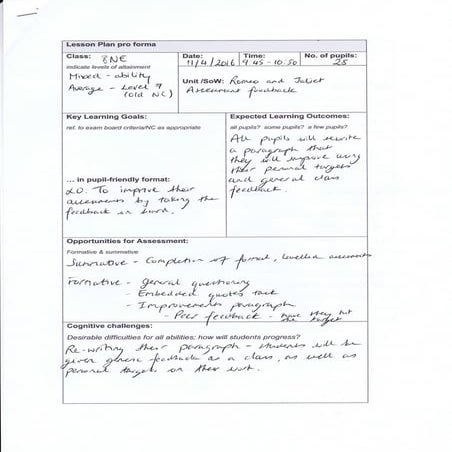 Lesson Plan pro forma
Class: 8NE
indicate levels of attainment
Mixed - ability
Average - Level
(old NC)
Date: 11/4/2016
Time: 9.45 - 10.50
No. of pupils: 28
Unit /SoW: Romeo and Juliet
Assessment feedback
Key Learning Goals:
ref. to exam board criteria/NC as appropriate
... in pupil-friendly format:
LO: To improve their
assessments by taking the
feedback on board.
Expected Learning Outcomes:
all pupils? some pupils? a few pupils?
All pupils will rewrite
a paragraph that
they will improve using
their personal targets
and general class
feedback.
Opportunities for Assessment:
Formative & summative
Summative - Completion of formal, levelled assessments
Formative - general questioning
- Embedded quotes task
- Improvements paragraph
- Peer feedback - have they hit
the target
Cognitive challenges:
Desirable difficulties for all abilities; how will students progress?
Re-writing their paragraph - students will be
given generic feedback as a class, as well as
personal targets on their work.